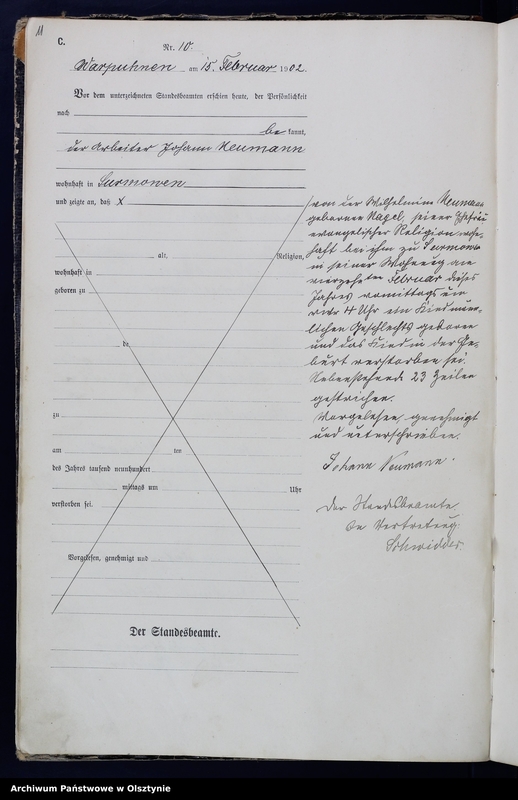 11
C.
Nr. 10.
Warpuhnen am 15. Februar 1902.
Vor dem unterzeichneten Standesbeamten erschien heute, der Persönlichkeit
nach
bekannt,
der Arbeiter Johann Neumann
wohnhaft in Surmowen
und zeigte an, daß X
alt, Religion,
wohnhaft in
geboren zu
de
zu
am ten
des Jahres tausend neunhundert
mittags um Uhr
verstorben sei.
Vorgelesen, genehmigt und
Der Standesbeamte.
von der Wilhelmine Neumann
geborenen Nagel, seiner Ehefrau
evangelischer Religion, wohn-
haft bei ihm zu Surmowen
in seiner Wohnung am
vierzehnten Februar dieses
Jahres vormittags um
4 Uhr ein Kind männ-
lichen Geschlechts geboren
und das Kind in der Ge-
burt verstorben sei.
Nebenstehende 23 Zeilen
gestrichen.
Vorgelesen, genehmigt
und unterschrieben.
Johann Neumann.
Der Standesbeamte
In Vertretung
Schwidder.
Archiwum Państwowe w Olsztynie